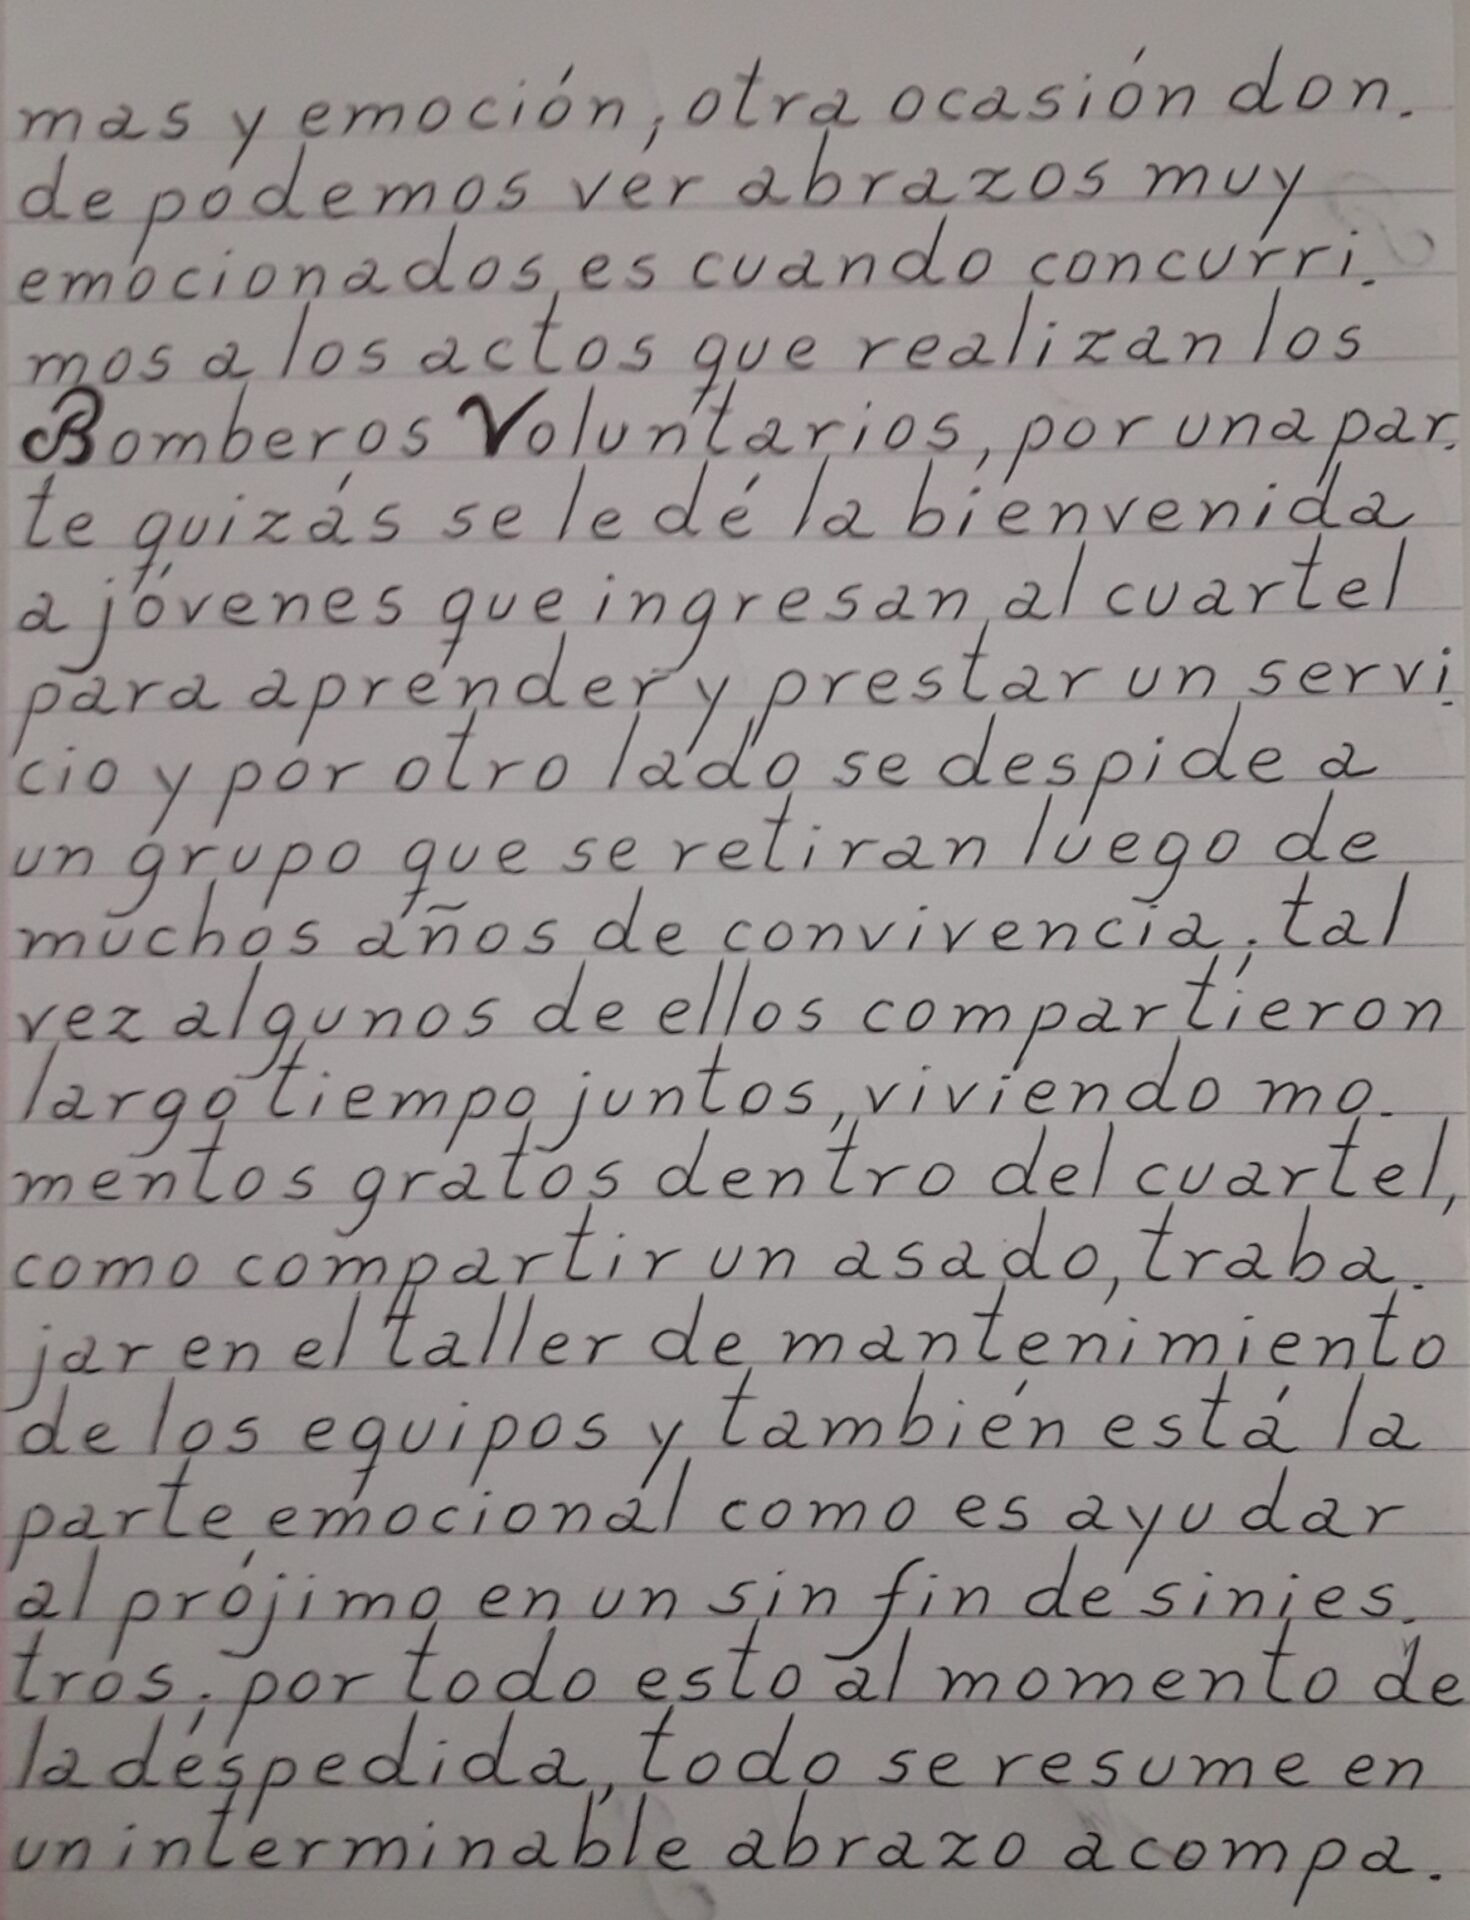 mas y emoción; otra ocasión don-
de podemos ver abrazos muy
emocionados, es cuando concurri-
mos a los actos que realizan los
Bomberos Voluntarios, por una par-
te quizás se le dé la bienvenida
a jóvenes que ingresan al cuartel
para aprender y prestar un servi-
cio y por otro lado se despide a
un grupo que se retiran luego de
muchos años de convivencia; tal
vez algunos de ellos compartieron
largo tiempo juntos, viviendo mo-
mentos gratos dentro del cuartel,
como compartir un asado, traba-
jar en el taller de mantenimiento
de los equipos y también está la
parte emocional como es ayudar
al prójimo en un sin fin de sinies-
tros; por todo esto al momento de
la despedida, todo se resume en
un interminable abrazo acompa-